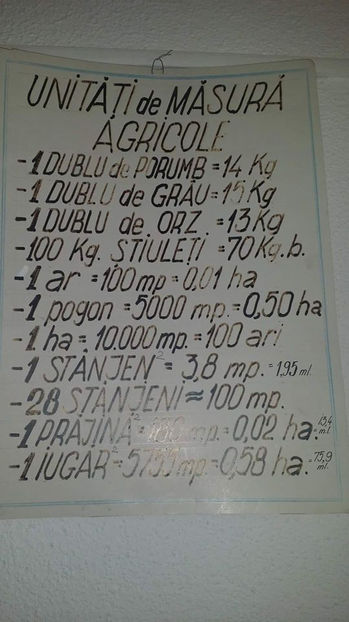 UNITĂȚI de MĂSURĂ
AGRICOLE
-1 DUBLU de PORUMB = 14 Kg
-1 DUBLU de GRÂU = 15 Kg
-1 DUBLU de ORZ. = 13 Kg
-100 Kg. STIULEȚI = 70 Kg.b.
-1 ar = 100 mp = 0.01 ha
-1 pogon = 5000 mp. = 0,50 ha
-1 ha = 10.000 mp. = 100 ari
-1 STÂNJEN² = 3,8 mp. = 1,95 ml.
-28 STÂNJENI ≈ 100 mp.
-1 PRĂJINĂ² = 180 mp. = 0,02 ha. = 13,4 ml.
-1 IUGAR² = 5755 mp. = 0,58 ha. = 75,9 ml.